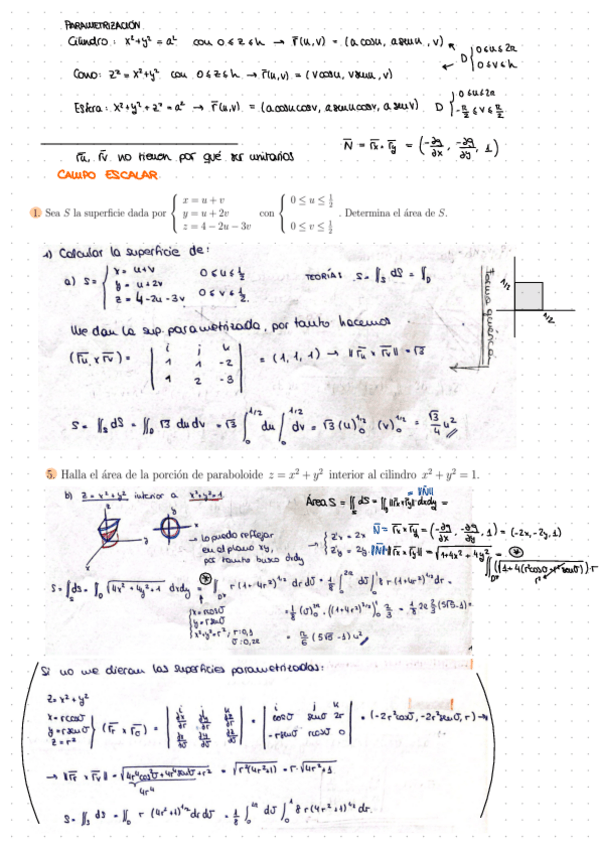 PARAMETRIZACIÓN
Cilindro: x²+y² = a² con 0≤z≤h → r̄(u,v) = (a cosu, a senu, v) D { 0≤u≤2π
0≤v≤h
Cono: z² = x²+y² con 0≤z≤h → r̄(u,v) = (v cosu, v senu, v)
Esfera: x²+y²+z² = a² → r̄(u,v) = (a cosu cosv, a senu cosv, a senv) D { 0≤u≤2π
-π/2 ≤ v ≤ π/2
r̄u, r̄v no tienen por qué ser unitarios
N̄ = r̄x × r̄y = (-∂g/∂x, -∂g/∂y, 1)
CAMPO ESCALAR
1. Sea S la superficie dada por { x = u + v
y = u + 2v
z = 4 − 2u − 3v
con { 0 ≤ u ≤ 1/2
0 ≤ v ≤ 1/2
. Determina el área de S.
1) Calcular la superficie de:
a) S = { x = u+v
y = u+2v
z = 4-2u-3v
0≤u≤1/2
0≤v≤1/2.
TEORÍA: S = ∬s dS = ∬D
1/2
1/2
Nos dan la sup. parametrizada, por tanto hacemos
(r̄u × r̄v) = | i j k
1 1 -2
1 2 -3 | = (1, 1, 1) → ‖r̄u × r̄v‖ = √3
S = ∬s dS = ∬D √3 du dv = √3 ∫₀^1/2 du ∫₀^1/2 dv = √3 (u)₀^1/2 · (v)₀^1/2 = √3/4 u²
5. Halla el área de la porción de paraboloide z = x² + y² interior al cilindro x² + y² = 1.
b) z = x²+y² interior a x²+y²=1
→ lo puedo reflejar
en el plano xy,
por tanto busco dxdy
Área S = ∬ dS = ∬ ‖r̄x × r̄y‖ dxdy =
= ‖N̄‖
{ z'x = 2x
z'y = 2y
N̄ = r̄x × r̄y = (-∂g/∂x, -∂g/∂y, 1) = (-2x, -2y, 1)
‖N̄‖ = ‖r̄x × r̄y‖ = √(1+4x²+4y²) = ⊛
S = ∫s dS = ∬D √(4x²+4y²+1) dxdy = ⊛ ∬D* r(1+4r²)^1/2 dr dϑ = 1/8 ∫₀^2π dϑ ∫₀ 8r(1+4r²)^1/2 dr =
{ x = r cosϑ
y = r senϑ
x²+y²=r²; r: 0,1
ϑ: 0, 2π
= 1/8 (ϑ)₀^2π · ((1+4r²)^3/2)₀ 2/3 = 1/8 2π 2/3 (5√5-1) =
= π/6 (5√5-1) u²
Si no me dieran las superficies parametrizadas:
z = x²+y²
x = r cosϑ
y = r senϑ
z = r²
} (r̄r × r̄ϑ) = | i j k
∂x/∂r ∂y/∂r ∂z/∂r
∂x/∂ϑ ∂y/∂ϑ ∂z/∂ϑ | = | i j k
cosϑ senϑ 2r
-r senϑ r cosϑ 0 | = (-2r²cosϑ, -2r²senϑ, r) →
→ ‖r̄r × r̄ϑ‖ = √(4r⁴cos²ϑ + 4r⁴sen²ϑ + r²) = √(r²(4r²+1)) = r·√(4r²+1
4r⁴
S = ∬s dS = ∬D r (4r²+1)^1/2 dr dϑ = 1/8 ∫₀^2π dϑ ∫₀^1 8r(4r²+1)^1/2 dr.